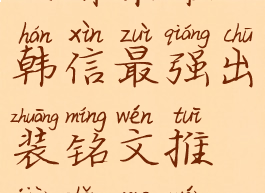 hán xìn zuì qiáng chū
韩信最强出
zhuāng míng wén tuī
装铭文推